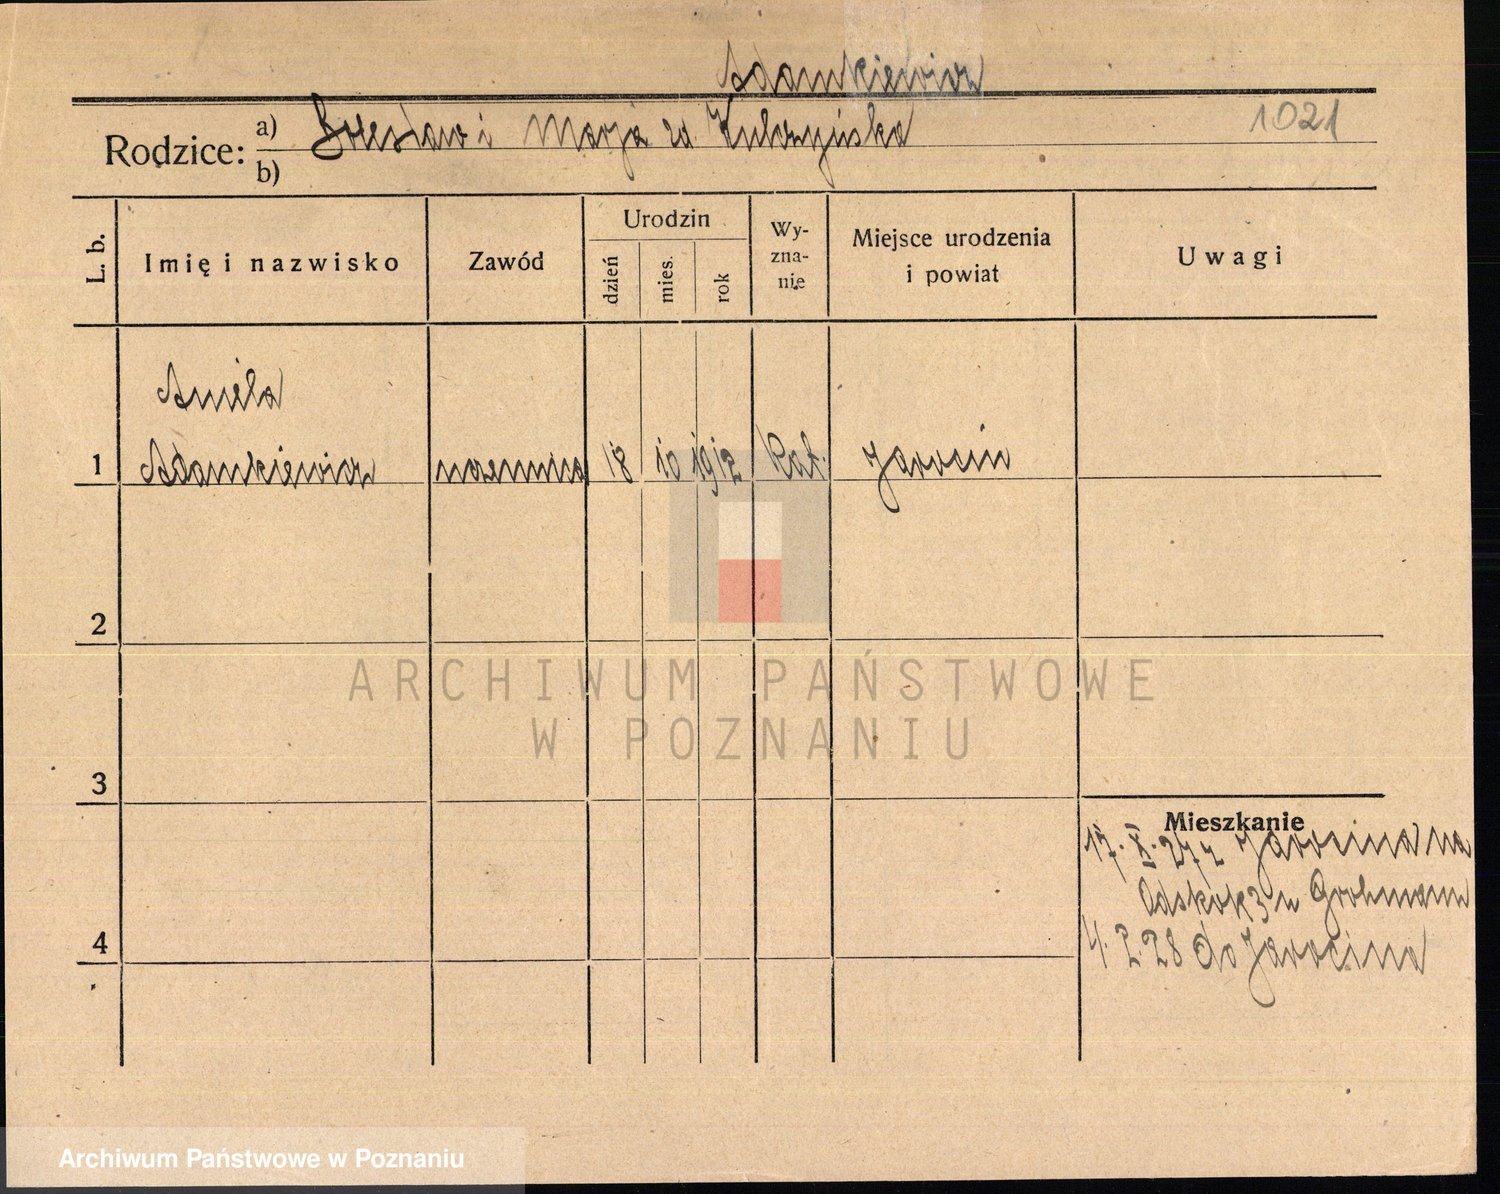 Adamkiewicz
1021
Rodzice: a) Bolesław i Marja zd. Kulczyńska
b)
L. b.
Imię i nazwisko
Zawód
Urodzin
dzień
mies.
rok
Wy-
zna-
nie
Miejsce urodzenia
i powiat
Uwagi
Aniela
1 Adamkiewicz uczennica 18 10 1912 kat. Jarocin
2
3
4
Mieszkanie
17. XI. 27 z Jarocina na
Odskok 3 u Grohmann
4. 2. 28 do Jarocina
ARCHIWUM PAŃSTWOWE
W POZNANIU
Archiwum Państwowe w Poznaniu